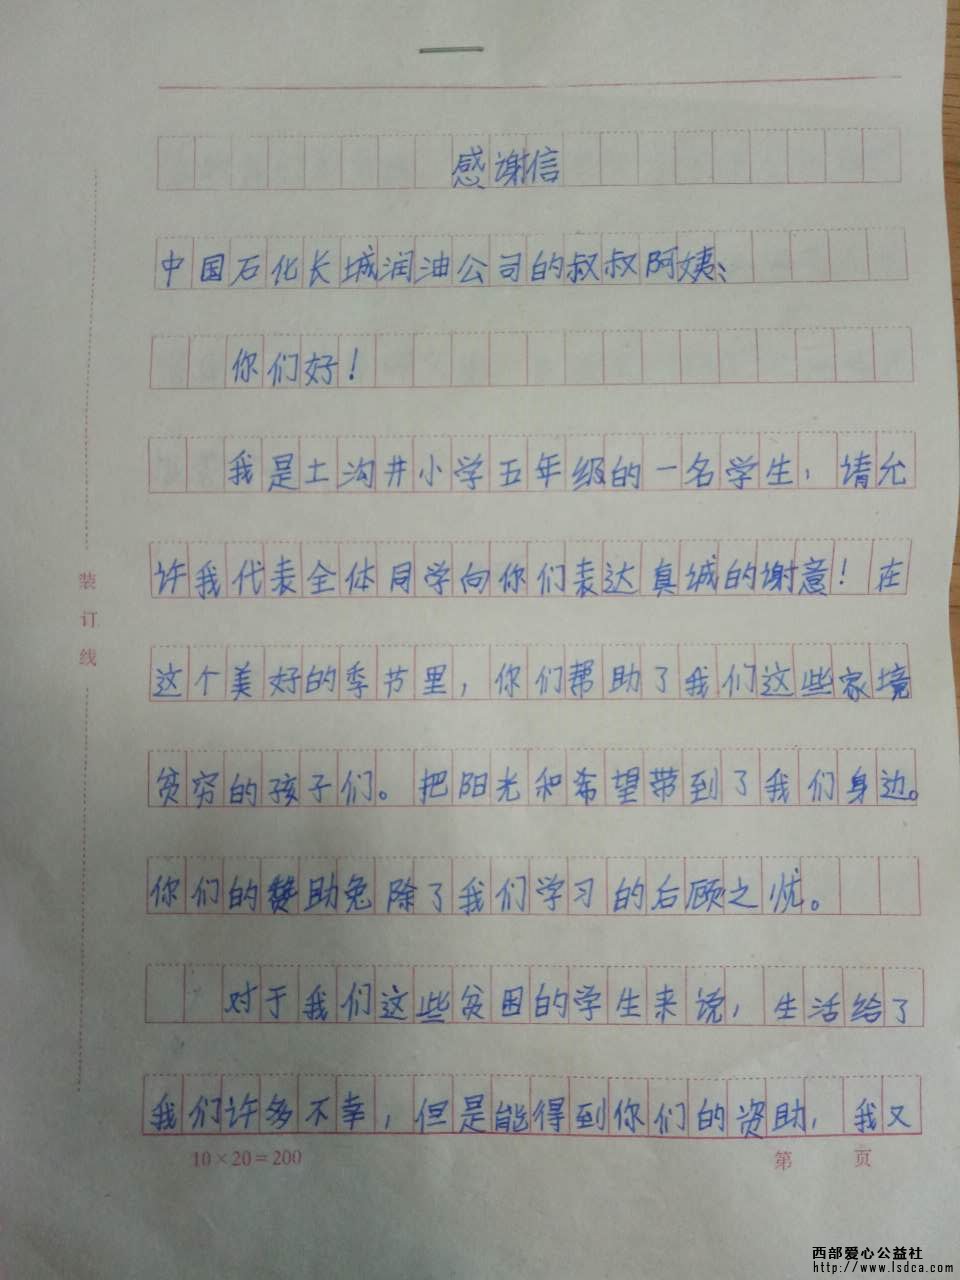 感谢信
中国石化长城润油公司的叔叔阿姨、
你们好！
我是土沟井小学五年级的一名学生，请允
许我代表全体同学向你们表达真诚的谢意！在
这个美好的季节里，你们帮助了我们这些家境
贫穷的孩子们。把阳光和希望带到了我们身边。
你们的赞助免除了我们学习的后顾之忧。
对于我们这些贫困的学生来说，生活给了
我们许多不幸，但是能得到你们的资助，我又
装订线
10×20=200
第 页
西部爱心公益社
http://www.lsdca.com